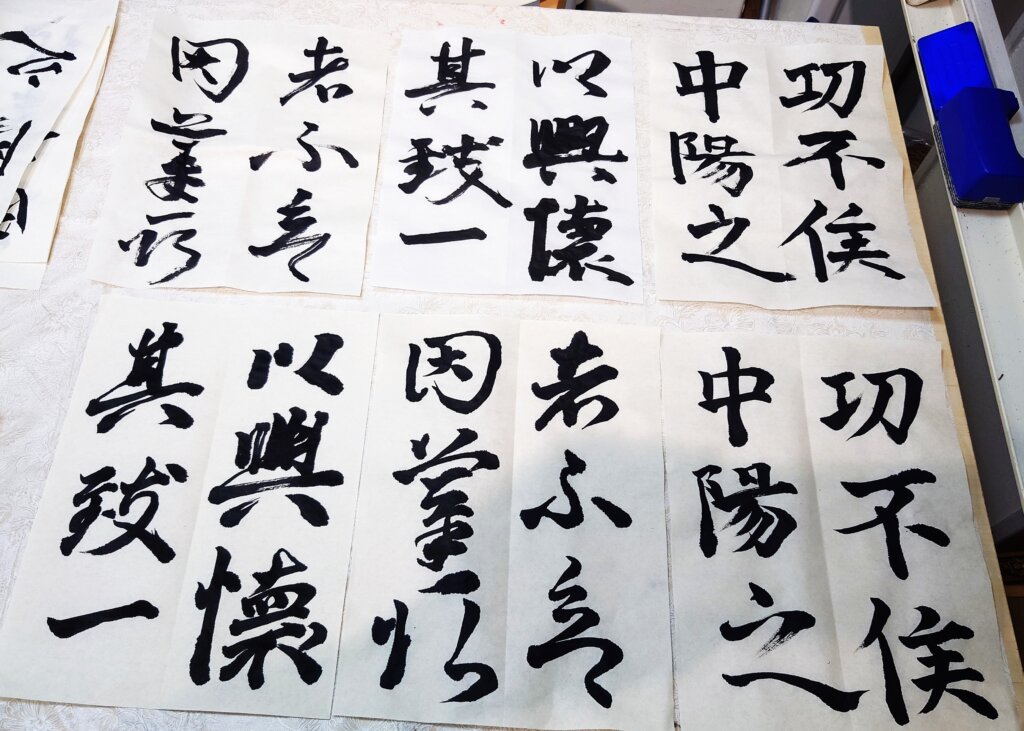 功不侯
中陽之
以興懷
其致一
者不言
因
功不侯
中陽之
者不言
因
以興懷
其致一